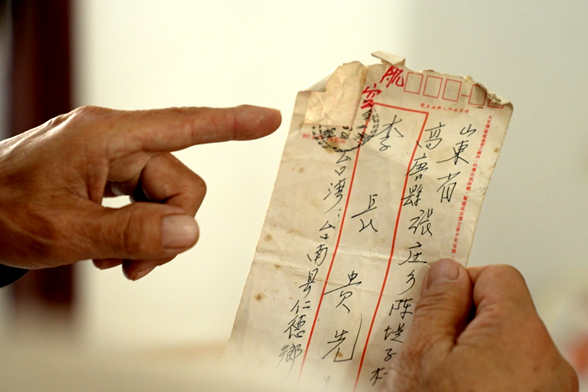 山東省
高唐縣張庄乡陳堤子村
李長貴先
航空
台湾:台南县仁德鄉